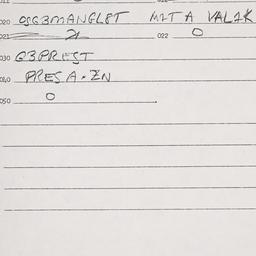 020 OSG3MANGLET MIT A VALIK
021 21 022 O
030 Q3PREST
040 PRESA-ZN
050 O